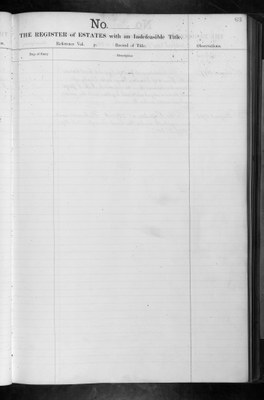 No.
THE REGISTER of ESTATES with an Indefeasible Title.
Reference Vol. p. Record of Title.
Observations
Day of Entry
Description